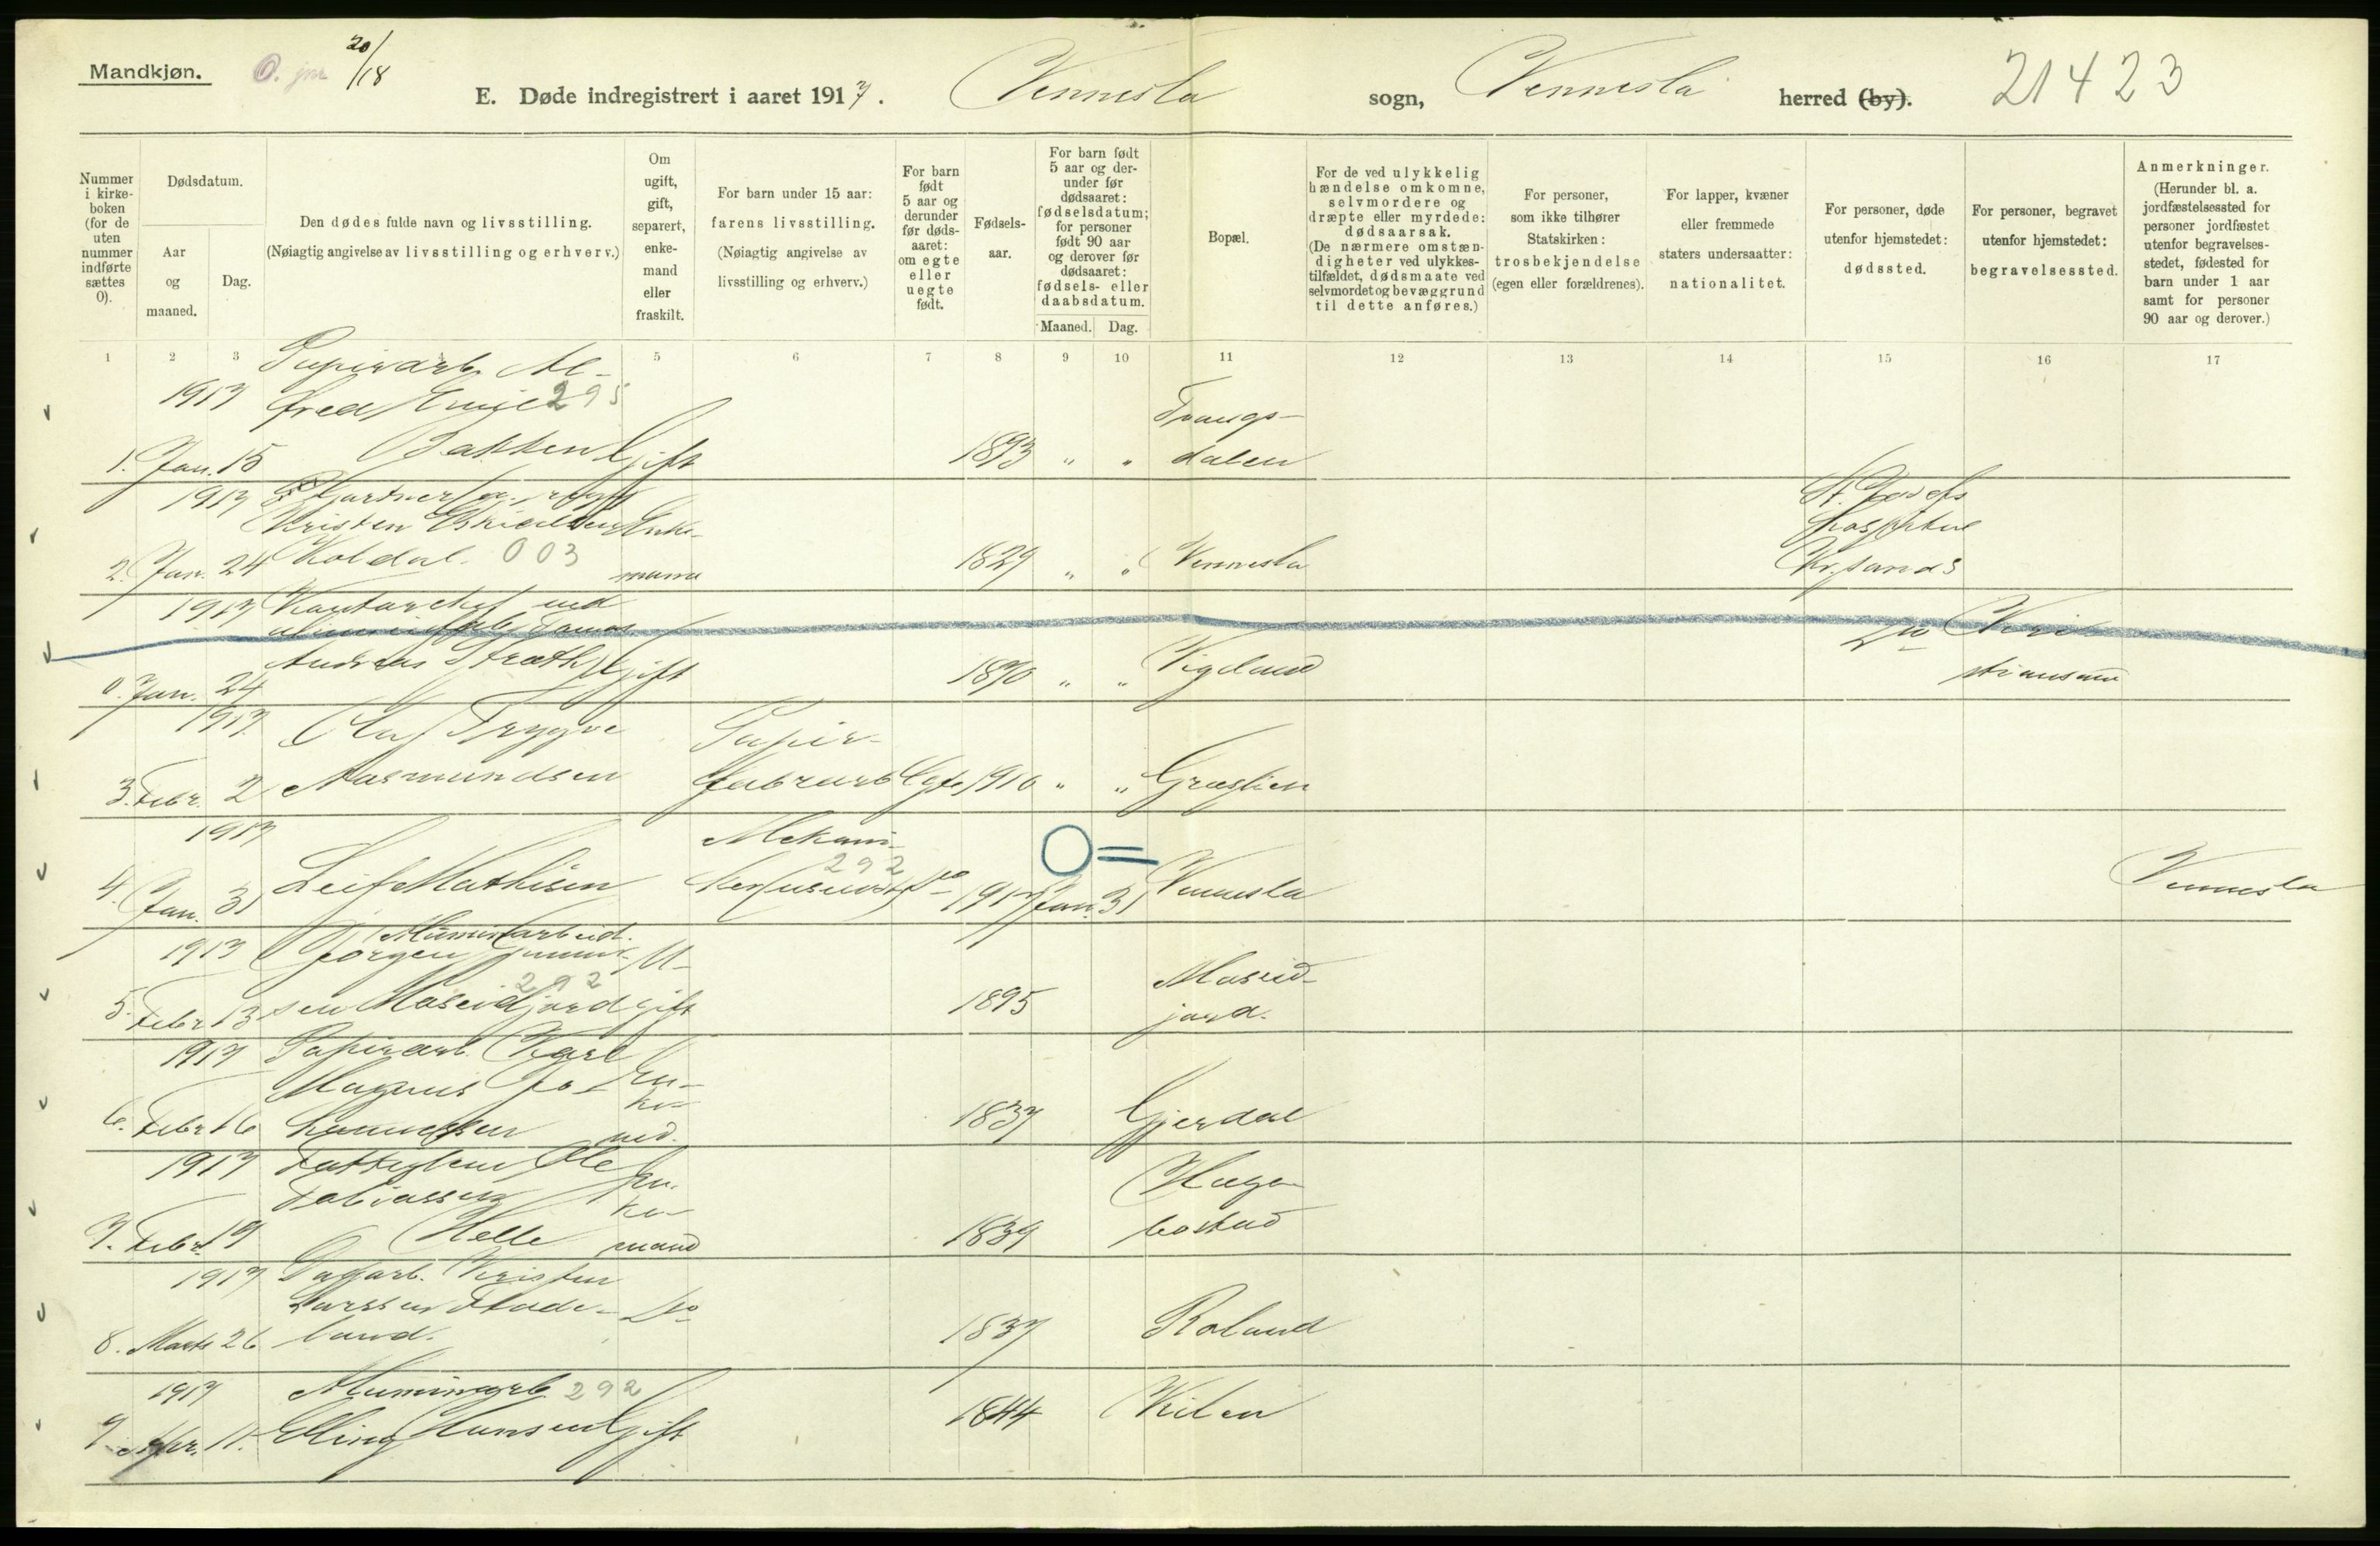 Mandkjøn.
20/18
E. Døde indregistrert i aaret 1917.
Vennesla sogn, Vennesla herred (by).
21423
Nummer i kirke-boken (for de uten nummer indførte sættes 0).
Dødsdatum.
Aar og maaned.
Dag.
Den dødes fulde navn og livsstilling.
(Nøiagtig angivelse av livsstilling og erhverv.)
Om ugift, gift, separert, enke-mand eller fraskilt.
For barn under 15 aar:
farens livsstilling.
(Nøiagtig angivelse av livsstilling og erhverv.)
For barn født 5 aar og derunder før døds-aaret: om egte eller uegte født.
Fødsels-aar.
For barn født 5 aar og der-under før dødsaaret: fødselsdatum; for personer født 90 aar og derover før dødsaaret: fødsels- eller daabsdatum.
Maaned. Dag.
Bopæl.
For de ved ulykkelig hændelse omkomne, selvmordere og dræpte eller myrdede: dødsaarsak.
(De nærmere omstæn-digheter ved ulykkes-tilfældet, dødsmaate ved selvmordet og bevæggrund til dette anføres.)
For personer, som ikke tilhører Statskirken: trosbekjendelse (egen eller forældrenes).
For lapper, kvæner eller fremmede staters undersaatter: nationalitet.
For personer, døde utenfor hjemstedet: dødssted.
For personer, begravet utenfor hjemstedet: begravelsessted.
Anmerkninger.
(Herunder bl. a. jordfæstelsessted for personer jordfæstet utenfor begravelses-stedet, fødested for barn under 1 aar samt for personer 90 aar og derover.)
1 2 3 5 6 7 8 9 10 11 12 13 14 15 16 17
Papirarb. Al-
1917 fred 295
1. Jan. 15 Bakken Gift 1893 " " dalen
1917
Kristen Enke-
2. Jan. 24 Koldal. 003 mand 1829 " " Vennesla
St. Josefs hospital Kr.sands
1917 ved
Andreas Gift 1870 " " Vigeland
0. Jan. 24
Do Kri-
stiansand
1917 Olaf Trygve Papir-
3. Febr. 2 Aasmundsen fabrarb Egte 1910 " " Græslien
1917 Mekani-
292
4. Jan. 31 Leif Mathisen ker Do 1917 Jan. 31 Vennesla Vennesla
Aluminarbeid.
1917 Jørgen U-
292 Maseid-
5. Febr 13 sen Maseidjord gift 1895 jord.
1917 Papirarb. Karl
Magnus Jo- En-
ke-
6. Febr 16 hannessen md. 1837 Gjerdal
1917 Fattiglem Ole En-
Tobiassen ke- Hæge-
7. Febr. 19 Helle mand 1839 bostad
1917 Dagarb. Kristen
Larssen Do
8. Marts 26 land. 1837 Roland
1917 Aluminarb. 292
9 Apr. 11. Elling Hansen Gift 1844 Kilen